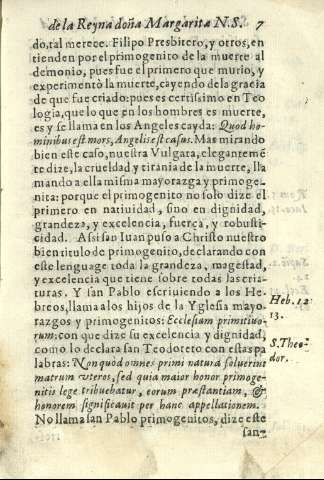 de la Reyna doña Margarita N.S. 7
do, tal merece. Filipo Presbitero, y otros, en
tienden por el primogenito de la muerte al
demonio, pues fue el primero que murio, y
experimentò la muerte, cayendo de la gracia
de que fue criado: pues es certissimo en Teo
logia, que lo que en los hombres es muerte,
es y se llama en los Angeles cayda: Quod ho-
minibus est mors, Angelis est casus. Mas mirando
bien este caso, nuestra Vulgata, elegantemẽ
te dize, la crueldad y tirania de la muerte, lla
mando a ella misma mayorazga y primoge-
nita: porque el primogenito no solo dize el
primero en natiuidad, sino en dignidad,
grandeza, y excelencia, fuerça, y robusti-
cidad. Assi san Iuan puso a Christo nuestro
bien titulo de primogenito, declarando con
este lenguage toda la grandeza, magestad,
y excelencia que tiene sobre todas las cria-
turas. Y san Pablo escriuiendo a los He-
breos, llama a los hijos de la Yglesia mayo
razgos y primogenitos: Ecclesium primitiuo-
rum: con que dize su excelencia y dignidad,
como lo declara san Teodoreto con estas pa
labras: Non quòd omnes primi natura soluerint
matrum vteros, sed quia maior honor primoge-
nitis lege tribuebatur, eorum præstantiam, &
honorem significauit per hanc appellationem.
No llama san Pablo primogenitos, dize este
san-
Heb. 12
13.
S. Theo-
dor.